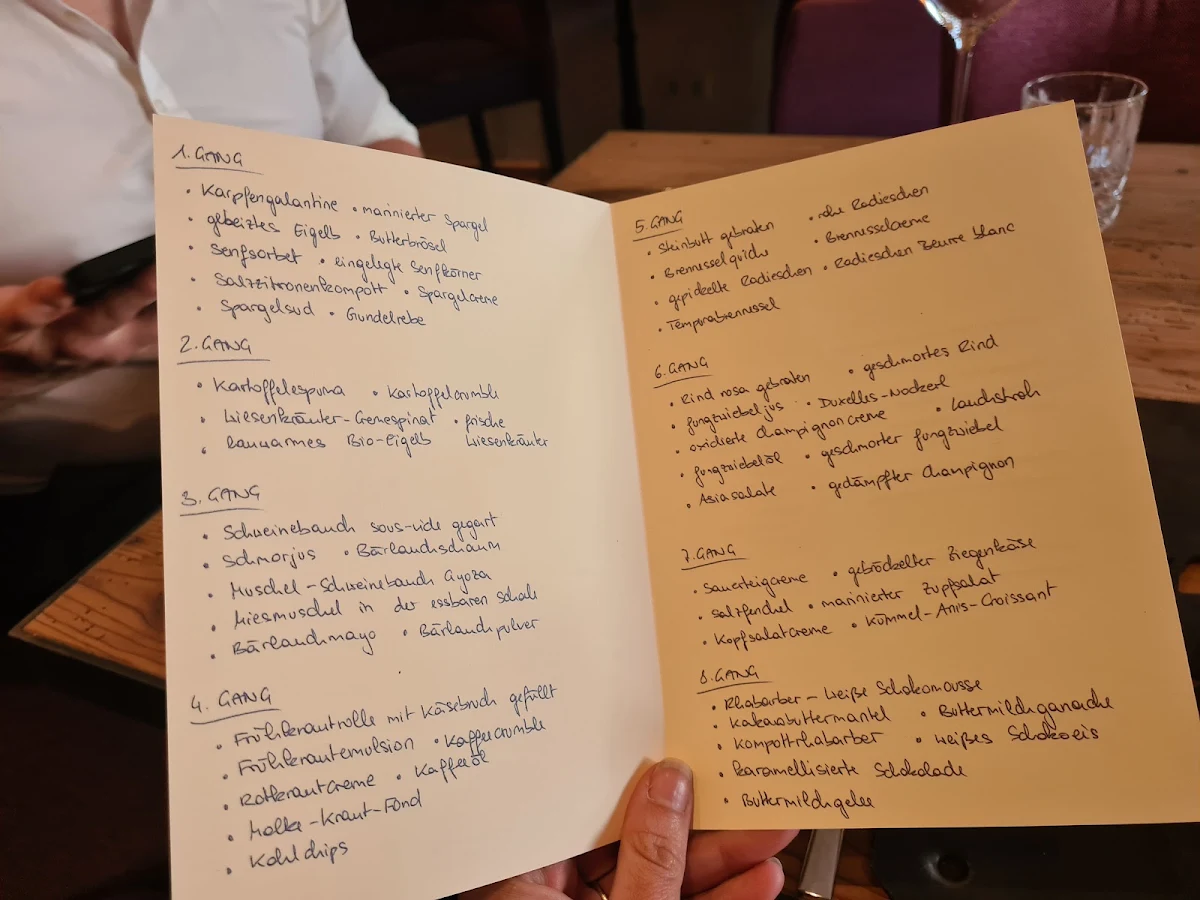 1. GANG
• Karpfengalantine • marinierter Spargel
• gebeiztes Eigelb • Butterbrösel
• Senfsorbet • eingelegte Senfkörner
• Salzzitronenkompott • Spargelcreme
• Spargelsud • Gundelrebe
2. GANG
• Kartoffelespuma • Kartoffelcrumble
• Wiesenkräuter-Cremespinat • frische
• lauwarmes Bio-Eigelb Wiesenkräuter
3. GANG
• Schweinebauch sous-vide gegart
• Schmorjus • Bärlauchschaum
• Muschel-Schweinebauch Gyoza
• Miesmuschel in der essbaren Schale
• Bärlauchmayo • Bärlauchpulver
4. GANG
• Frühkrautrolle mit Käsebruch gefüllt
• Frühkrautemulsion • Kaffeecrumble
• Rotkrautcreme • Kaffeeöl
• Molke-Kraut-Fond
• Kohlchips
5. GANG
• Steinbutt gebraten • rohe Radieschen
• Brennsselquiche • Brennsselcreme
• gepickelte Radieschen • Radieschen Beurre blanc
• Tempurabrennssel
6. GANG
• Rind rosa gebraten • geschmortes Rind
• Jungzwiebeljus • Duxelles-Nockerl
• oxidierte Champignoncreme • Lauchstroh
• Jungzwiebelöl • geschmorter Jungzwiebel
• Asiasalate • gedämpfter Champignon
7. GANG
• Sauerteigcreme • gebröckelter Ziegenkäse
• Salzfenchel • marinierter Zupfsalat
• Kopfsalatcreme • Kümmel-Anis-Croissant
8. GANG
• Rhabarber-Weiße Schokomousse
• Kakaobuttermantel • Buttermilchganache
• Kompottrhabarber • weißes Schokoeis
• karamellisierte Schokolade
• Buttermilchgelee